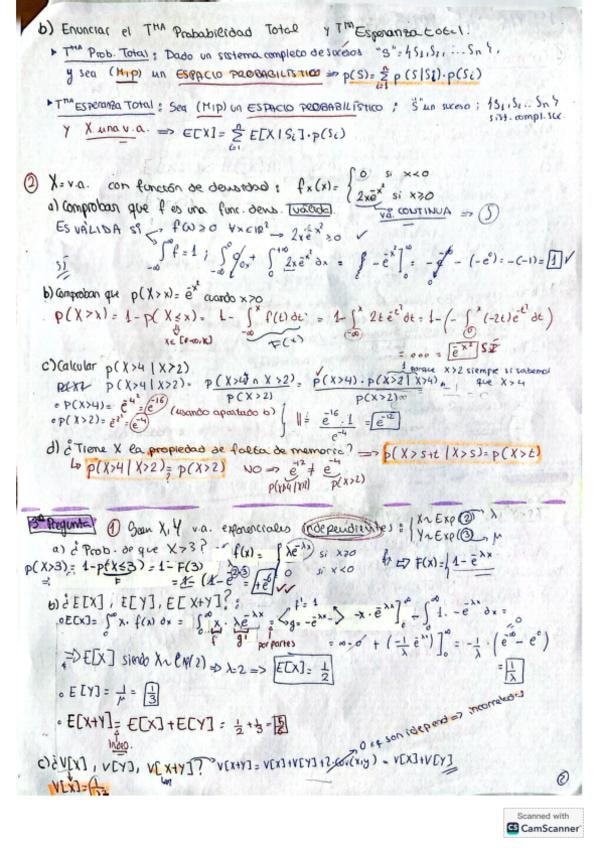 b) Enunciar el Tma Probabilidad Total y Tma Esperanza total.
▸ Tma Prob. Total: Dado un sistema completo de sucesos "S" = {S1, S2, ... Sn},
y sea (M,p) un ESPACIO PROBABILÍSTICO ⟹ p(S) = Σ p(S|Si)·p(Si)
▸ Tma Esperanza Total: Sea (M,p) un ESPACIO PROBABILÍSTICO; S un suceso; {S1, S2 ... Sn} sist. compl. suc.
y X una v.a. ⟹ E[X] = Σ E[X|Si]·p(Si)
② X = v.a. con función de densidad: fx(x) = { 0 si x<0
2xe^-x² si x≥0
a) Comprobar que f es una func. dens. válida. v.a. CONTINUA ⟹ ∫
ES VÁLIDA SI f(x) ≥ 0 ∀x∈ℝ → 2xe^-x² ≥ 0 ✓
∫f = 1; ∫0dx + ∫2xe^-x² dx = [-e^-x²] = -0 - (-e^0) = -(-1) = 1 ✓
SÍ
b) Comprobar que p(X>x) = e^-x² cuando x>0
p(X>x) = 1 - p(X≤x) = 1 - ∫f(t)dt = 1 - ∫2te^-t² dt = 1 - (-∫(-2t)e^-t² dt)
F(t) = ... = e^-x² SÍ
c) Calcular p(X>4 | X>2) 1 porque X>2 siempre si sabemos que X>4
p(X>4 | X>2) = p(X>4 ∩ X>2) / p(X>2) = p(X>4)·p(X>2 | X>4) / p(X>2)
• p(X>4) = e^-4² = e^-16
• p(X>2) = e^-2² = e^-4 (usando apartado b) || = e^-16·1 / e^-4 = e^-12
d) ¿Tiene X la propiedad de falta de memoria? ⟹ p(X>s+t | X>s) = p(X>t)
↳ p(X>4 | X>2) = p(X>2) NO ⟹ e^-12 ≠ e^-4
? p(X>4|X>2) p(X>2)
3ª Pregunta ① Sean X, Y v.a. exponenciales independientes: { X~Exp(2) λ
Y~Exp(3) μ
a) ¿Prob. de que X>3? f(x) = { λe^-λx si x≥0 ⟹ F(x) = 1 - e^-λx
0 si x<0
p(X>3) = 1 - p(X≤3) = 1 - F(3)
= 1 - (1 - e^-2·3) = e^-6 ✓✓
b) ¿E[X], E[Y], E[X+Y]?:
• E[X] = ∫x·f(x)dx = ∫x·λe^-λx = <f'=1 g=-e^-λx> = -x·e^-λx] - ∫1·-e^-λx dx =
f g' por partes = 0 - 0 + (-1/λ e^-λx)] = -1/λ·(e^-∞ - e^0)
= 1/λ
⟹ E[X] siendo X~exp(2) ⟹ λ=2 ⟹ E[X] = 1/2
• E[Y] = 1/μ = 1/3
• E[X+Y] = E[X] + E[Y] = 1/2 + 1/3 = 5/6
indep.
0 si son independ ⟹ incorrelados
c) ¿V[X], V[Y], V[X+Y]? V[X+Y] = V[X] + V[Y] + 2·cov(X,Y) = V[X] + V[Y]
V[X] =
②
Scanned with
CS CamScanner